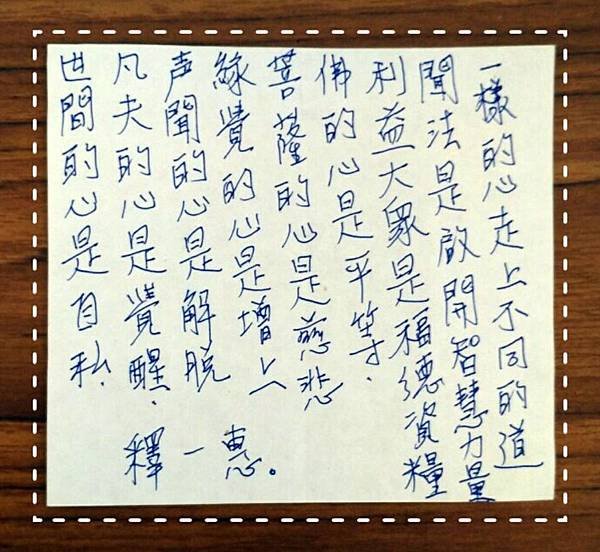 一樣的心走上不同的道
聞法是啟開智慧力量
利益大眾是福德資糧
佛的心是平等.
菩薩的心是慈悲
緣覺的心是增上
声聞的心是解脫
凡夫的心是覺醒.
世間的心是自私.
釋一惠。